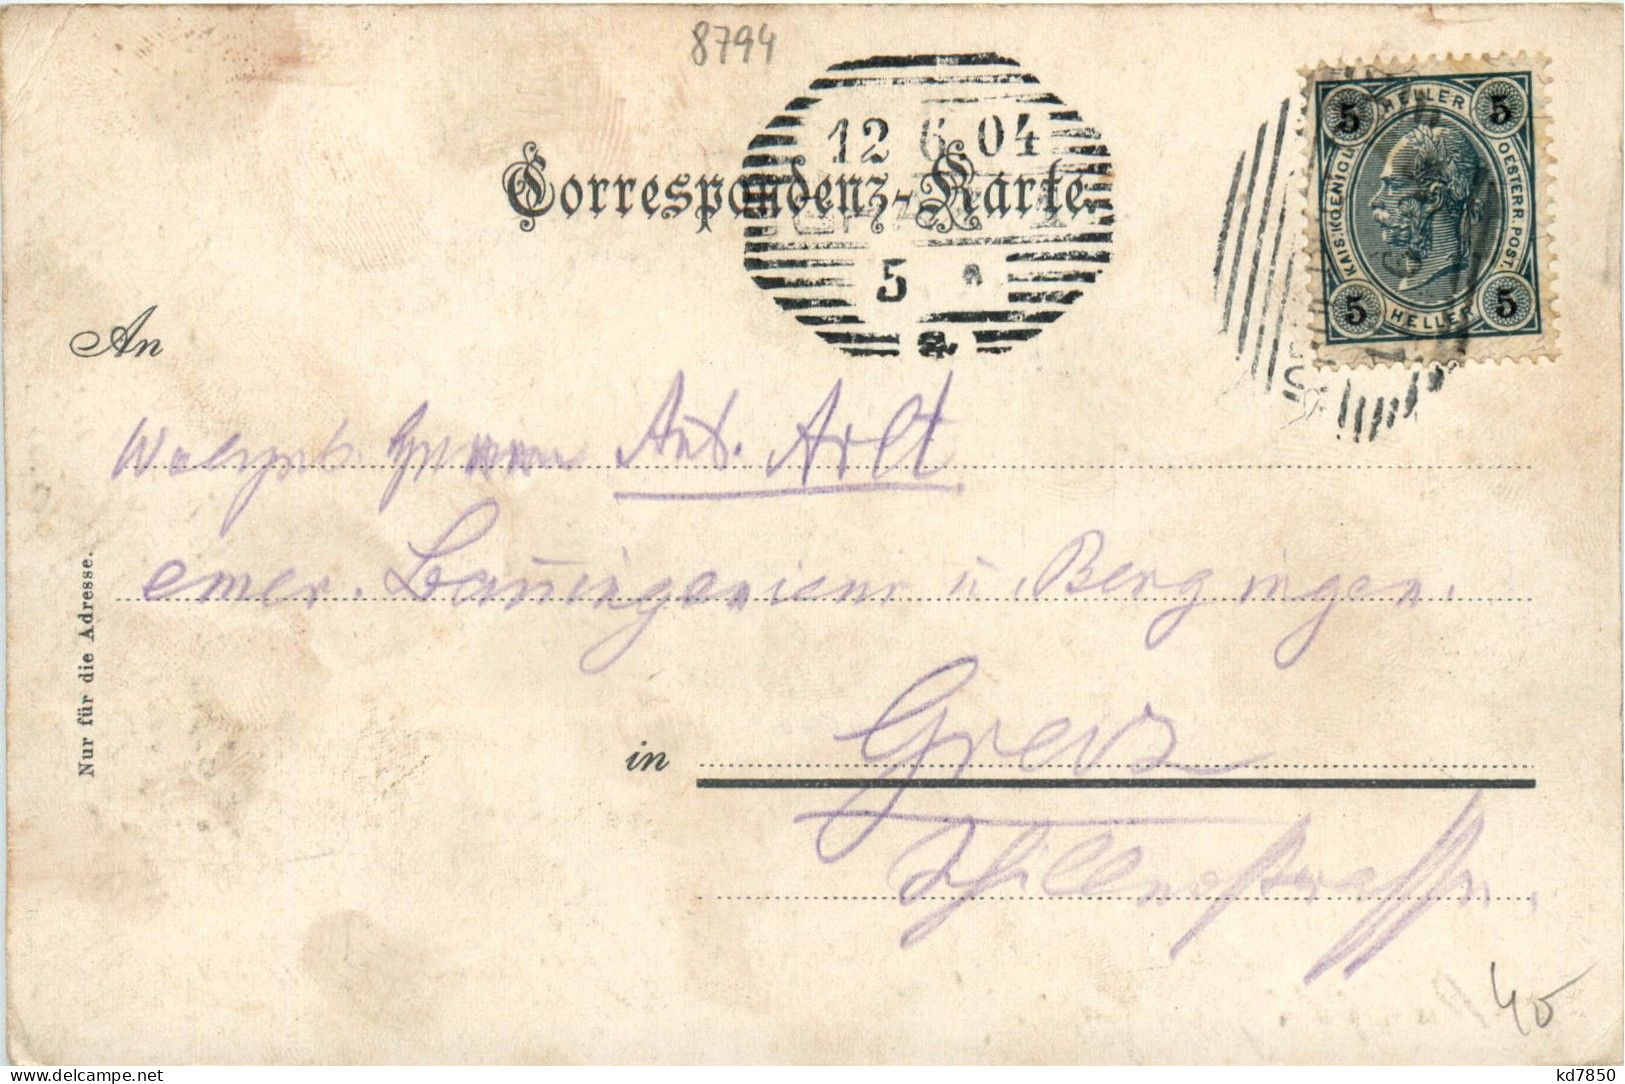 8794
12 6 04
Correspondenz-Karte.
5
5 HELLER 5
KAIS. KOENIGL. OESTERR. POST.
5 HELLER 5
An
Wolgeb. Herrn Ant. Arlt
emer. Bauingenieur u. Bergingen.
in Greiz
Schillerstrasse
Nur für die Adresse.
40
kd7850